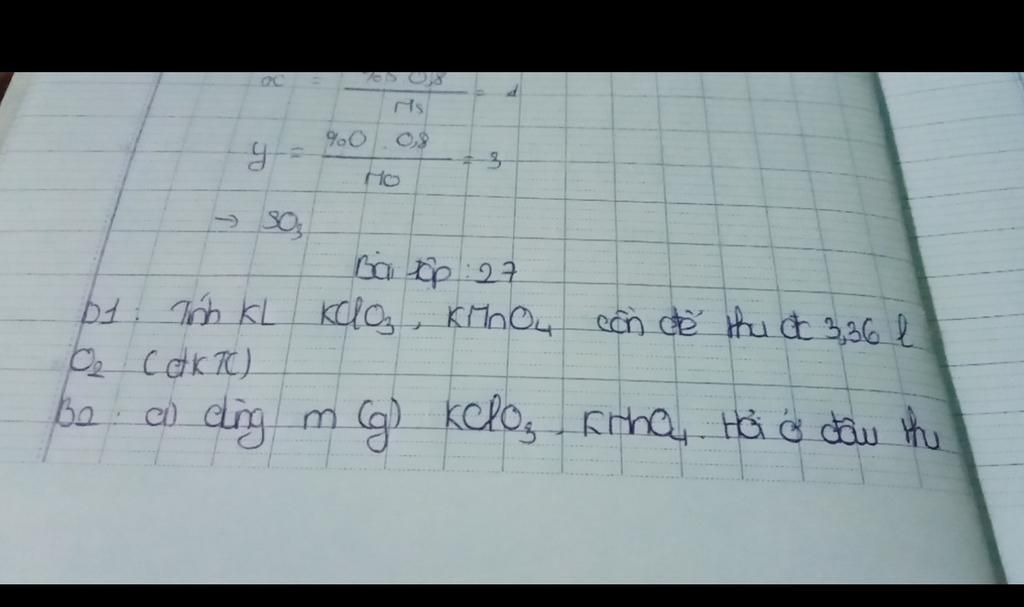 x = %S 0,8 / Ms = 1
y = %O . 0,8 / MO = 3
→ SO₃
Bài tập : 27
b1 : Tính KL KClO₃, KMnO₄ cần để thu đc 3,36 l
O₂ (đktc)
B2 : a) dùng m (g) KClO₃, KMnO₄. Hỏi ở đâu thu